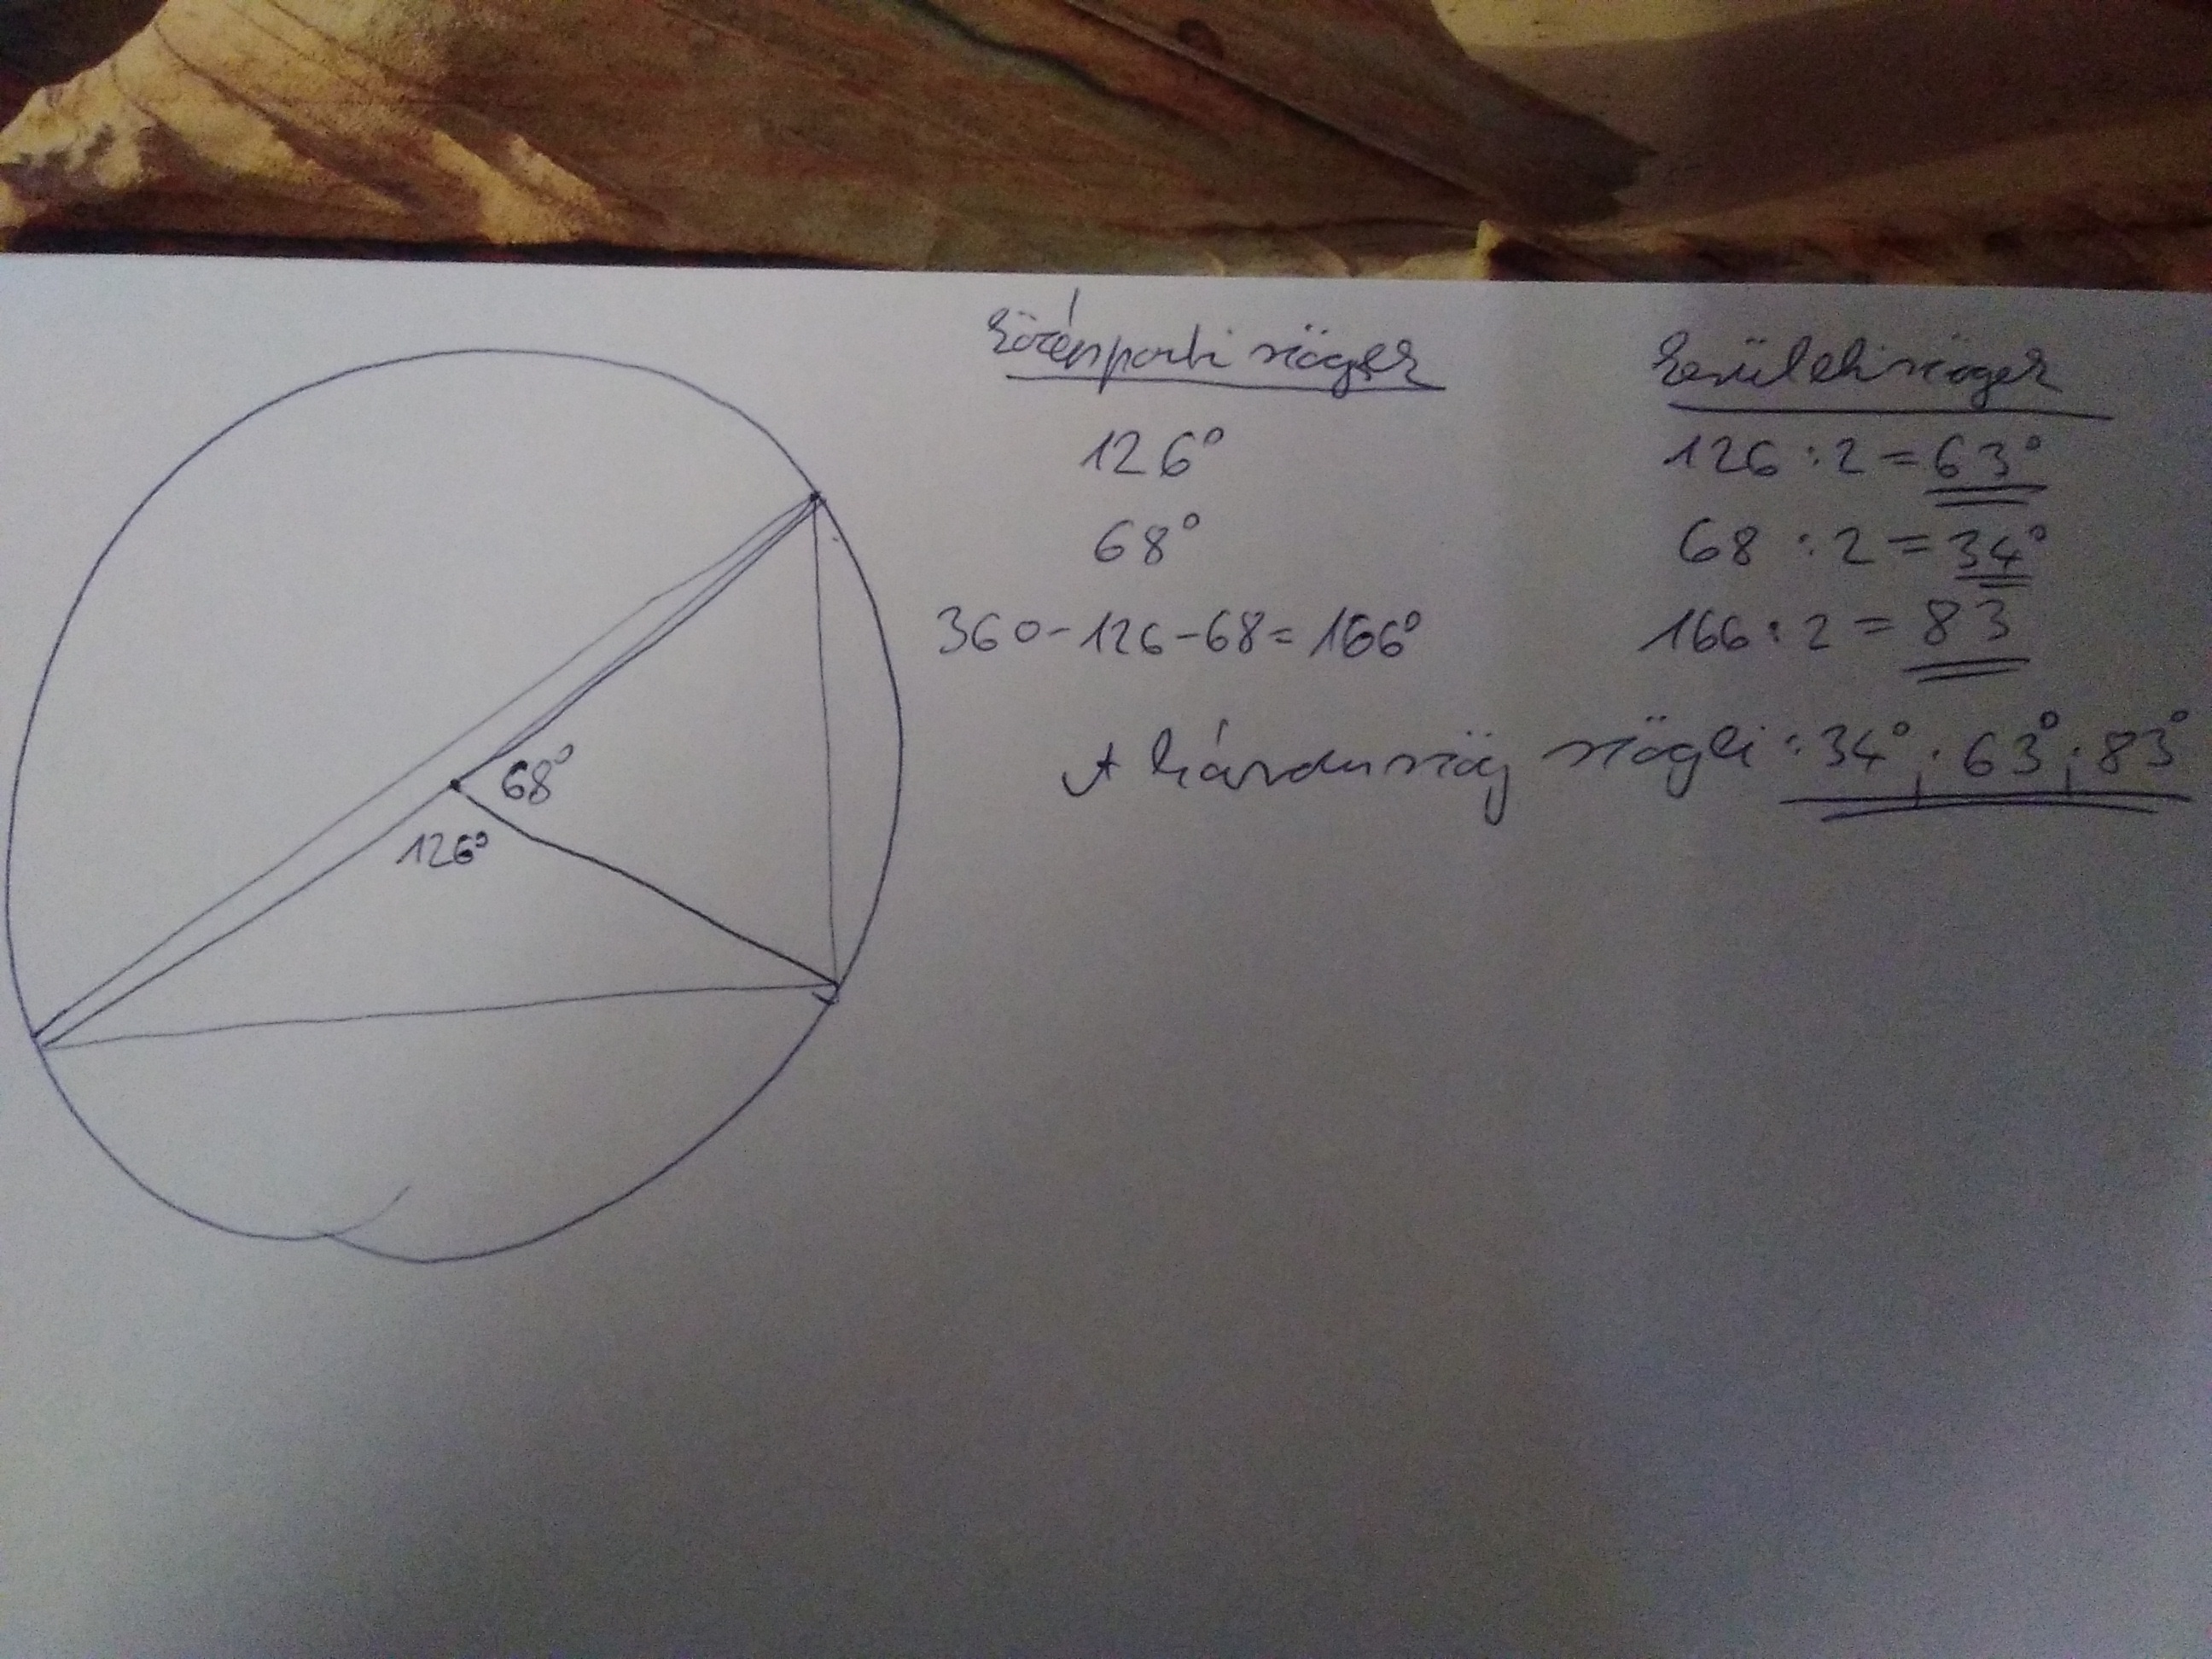 Középponti szögek
Kerületi szögek
126°
126 : 2 = 63°
68°
68 : 2 = 34°
360 - 126 - 68 = 166°
166 : 2 = 83
A háromszög szögei : 34° ; 63° ; 83°
68°
126°